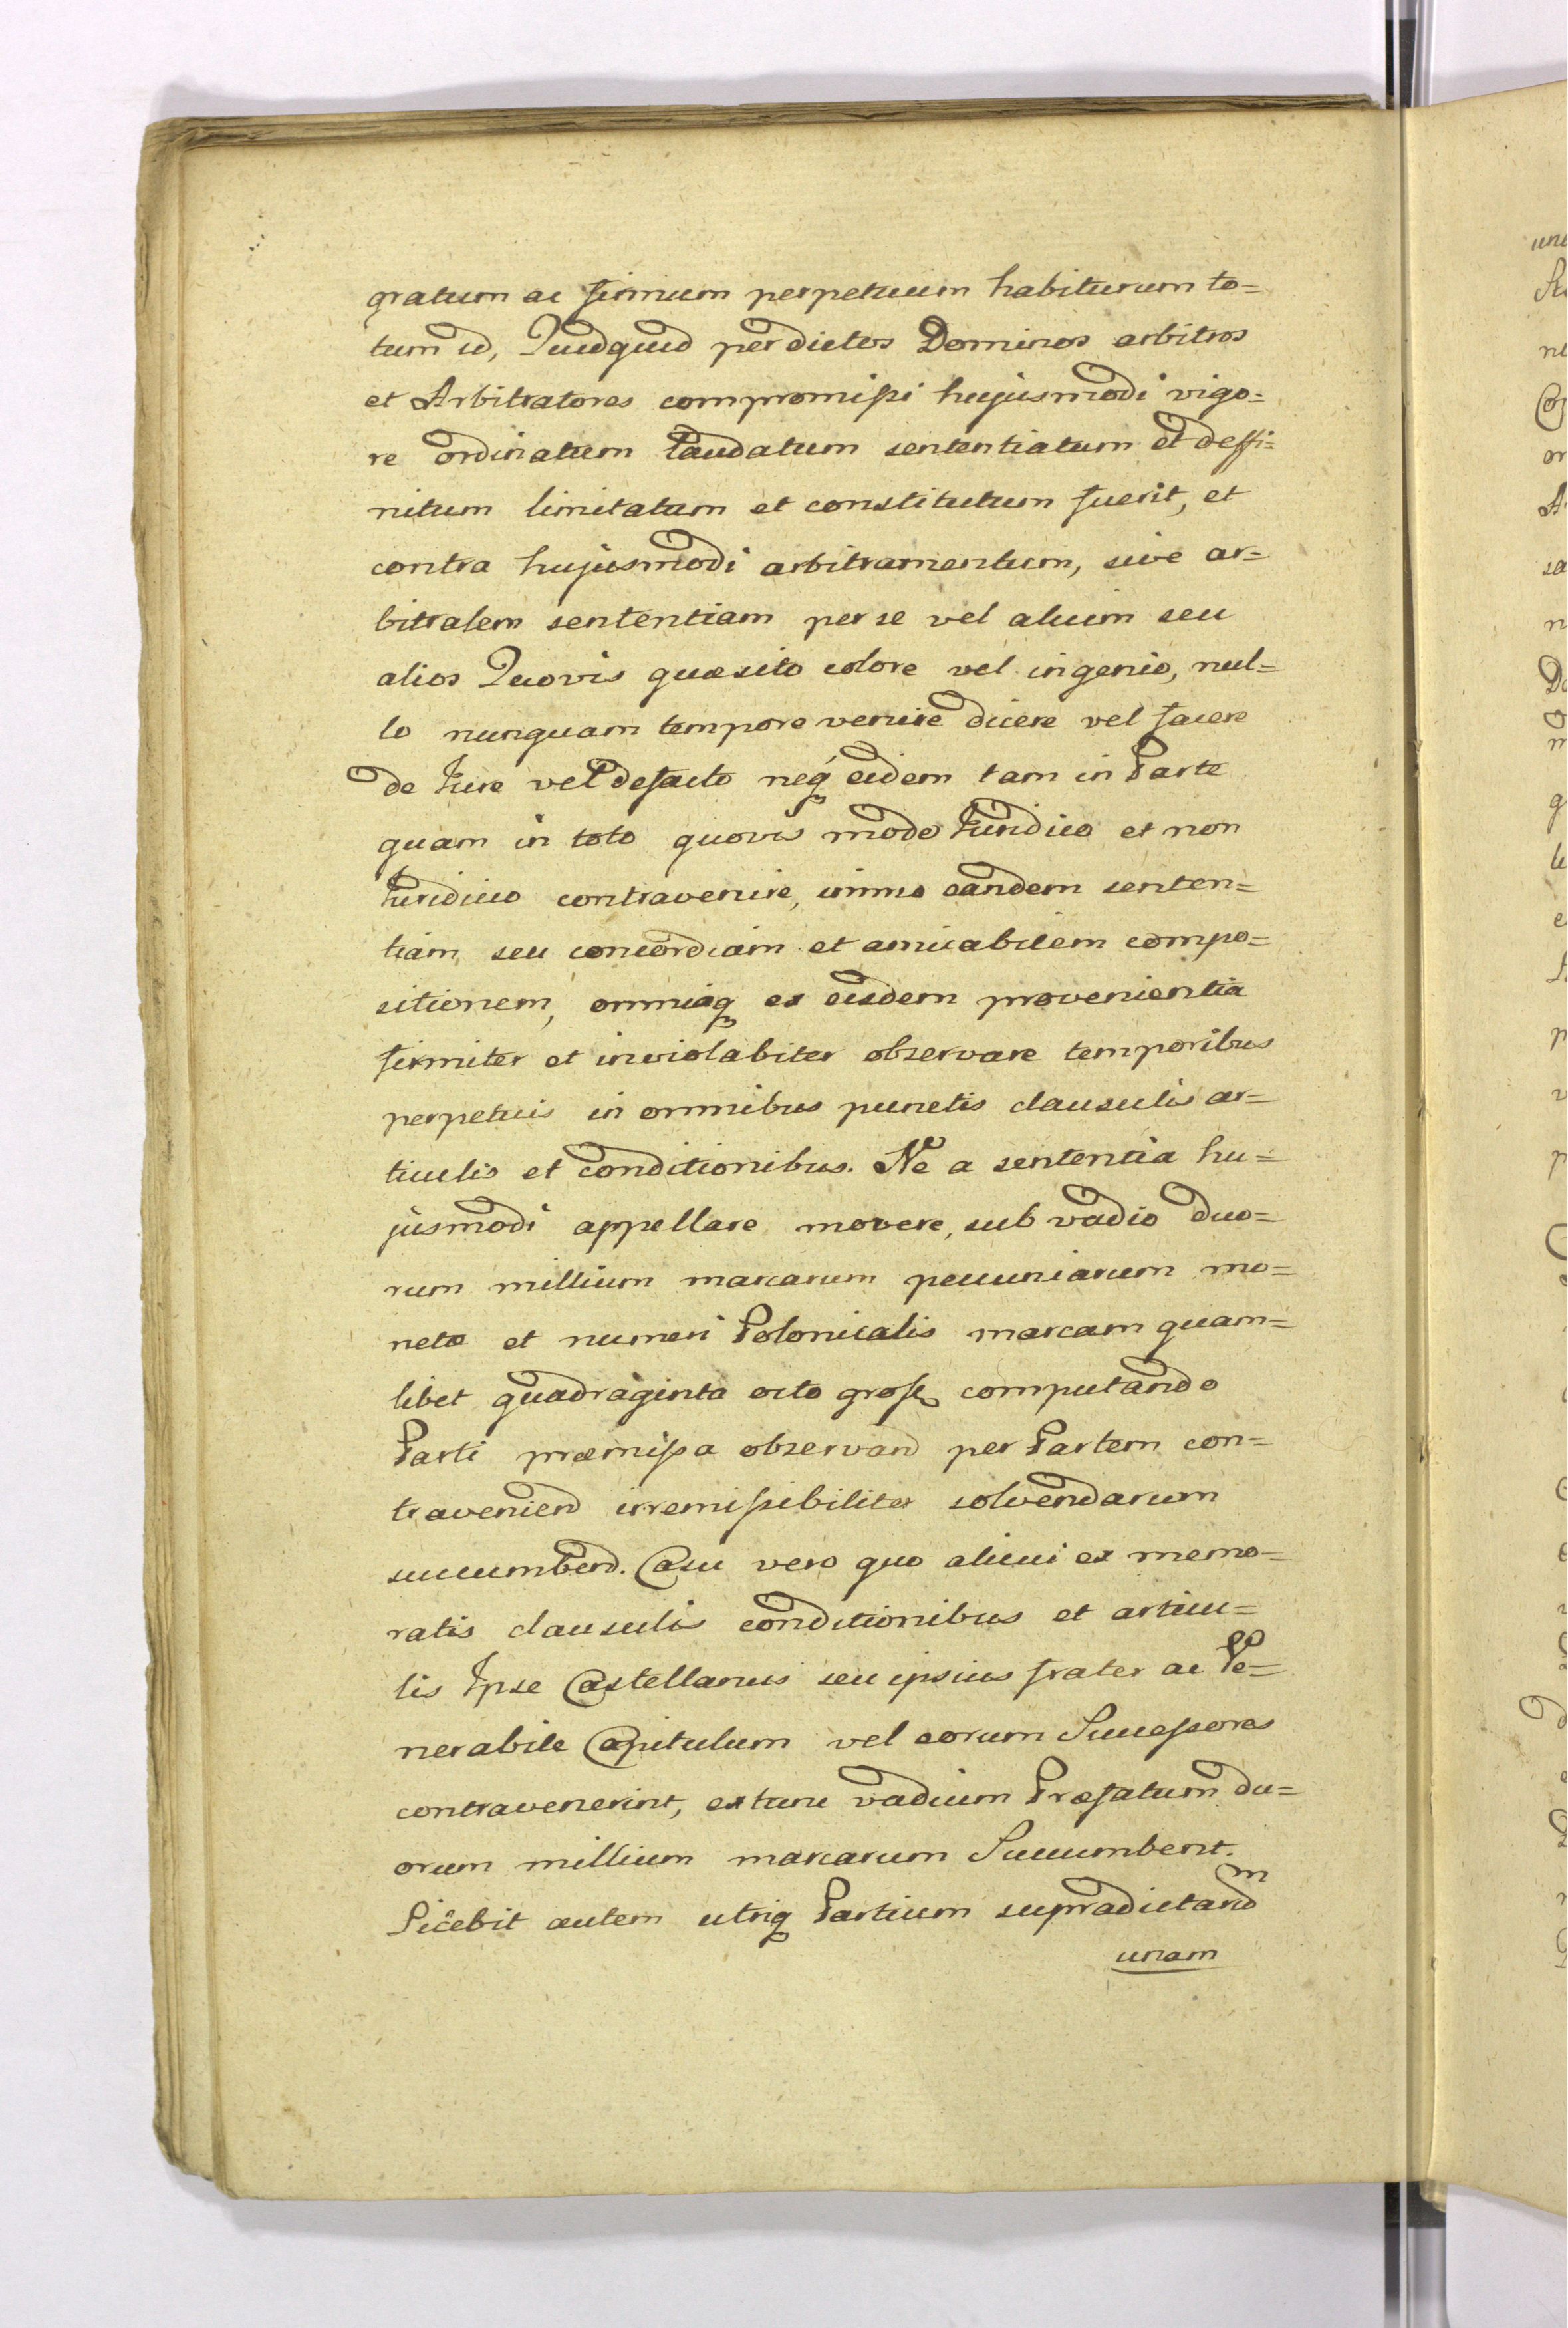 gratum ac firmum perpetuum habiturum to=
tum id, Quidquid per dictos Dominos arbitros
et Arbitratores compromissi hujusmodi vigo=
re ordinatum Laudatum sententiatum et deffi=
nitum limitatum et constitutum fuerit, et
contra hujusmodi arbitramentum, sive ar=
bitralem sententiam per se vel alium seu
alios Quovis quæsito colore vel ingenio, nul=
lo nunquam tempore venire dicere vel facere
de Jure vel de facto neq́ eidem tam in Parte
quam in toto quovis modo Juridico et non
Juridico contravenire, immo eandem senten=
tiam seu concordiam et amicabilem compo=
sitionem, omniaq ex eisdem provenientia
firmiter et inviolabiter observare temporibus
perpetuis in omnibus punctis clausulis ar=
ticulis et conditionibus. Ne a sententia hu=
jusmodi appellare movere, sub vadio duo=
rum millium marcarum pecuniarum mo=
netæ et numeri Polonicalis marcam quam=
libet quadraginta octo gross computando
Parti præmissa observand per Partem con=
traveniend irremissibiliter solvendarum
succumbend. Casu vero quo alicui ex memo=
ratis clausulis conditionibus et articu=
lis Ipse Castellanus seu ipsius frater ac Ve=
nerabile Capitulum vel eorum Successores
contravenerint, extunc vadium Præfatum du=
orum millium marcarum Succumbent.
Licebit autem utriq Partium supradictarum
unam